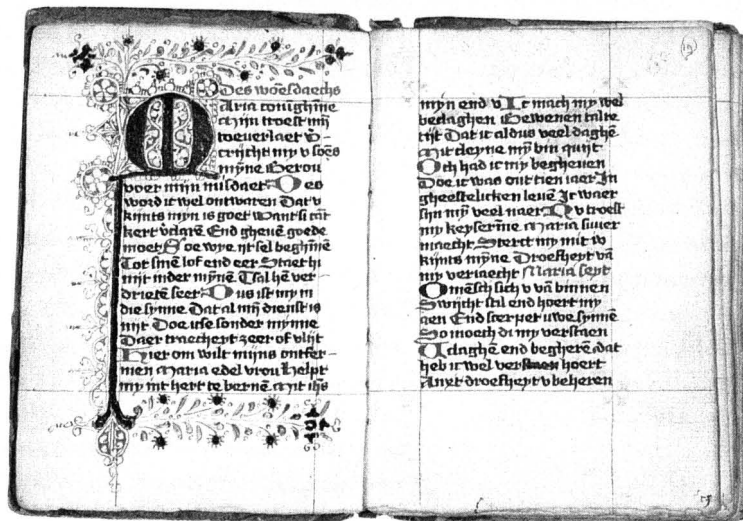 Des woesdaechs
Maria coninghinne
Mijn troest mij
toeverlaet
crijcht my v soēs
myne Berou
voer mijn misdaet Des
word ic wel ontwaren Dat v
kijnts myn is goet Want si
kert End ghevē goede
moet Soe wye yt sel beghīnē
Tot sinē lof end eer Staet hi
mit inder mynē Tsal hē ver-
drietē seer Dus ist my in
die synne Dat al mij dienst is
nyt Doe use sonder mynne
Daer traechert zeer of vlijt
Hier om wilt mijns ontfer-
men Maria edel vrou Helpt
my int hert te bernē Mit ihs
19
myn end v Ic mach my wel
beclaghen Bewenen talre
tijt Dat ic aldus veel daghē
Mit cleyne my bin quijt
Och had ic my begheven
Doe ic was out tien iaer In
gheestelicken levē Ic waer
sijn mȳ veel naer Nv troest
my keyserīne Maria suver
maecht Sterct my mit
kijnts mynē Droefheyt vā
my veriaecht Maria seyt
O mēsch sich v vā binnen
Swijcht stil end hoert my
aen End scerpet uwe synnē
So moech di my verstaen
V claghē end begherē dat
heb ic wel verstaen hoert
Anxt droefheyt v beheren